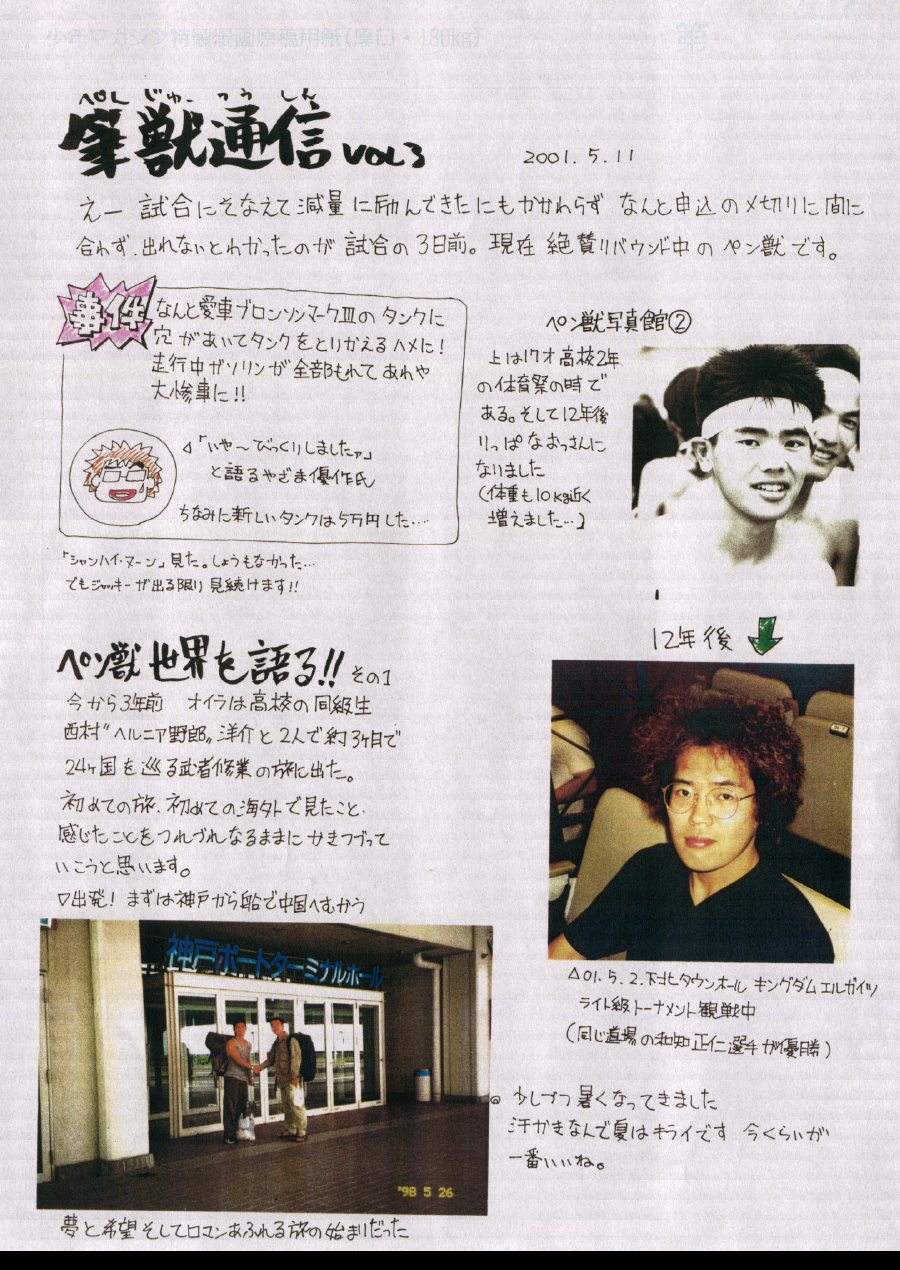 少年マガジン特製漫画原稿用紙(厚口・180kg)
第
ペン じゅう つう しん
筆獣通信 VOL3
2001.5.11
えー 試合にそなえて減量に励んできたにもかかわらず なんと申込の〆切りに間に
合わず、出れないとわかったのが 試合の3日前。現在 絶賛リバウンド中の ペン獣です。
事件
なんと愛車ブロンソンマークⅢの タンクに
穴 があいてタンクをとりかえるハメに!
走行中ガソリンが 全部もれて あわや
大惨事に!!
◁「いや〜びっくりしましたァ」
と語るやざま優作氏
ちなみに新しいタンクは5万円した…
「シャンハイ・ヌーン」見た。しょうもなかった…
でもジャッキーが出る限り 見続けます!!
ペン獣写真館②
上は17才 高校2年
の体育祭の時で
ある。そして12年後
りっぱ なおっさんに
なりました
(体重も10kg近く
増えました…)
12年後
ペン獣 世界を語る!! その1
今から3年前 オイラは高校の同級生
西村"ヘルニア野郎"洋介と2人で約3ヶ月で
24ヶ国を巡る武者修業の旅に出た。
初めての旅、初めての海外で見たこと、
感じたことをつれづれなるままに かきつづって
いこうと思います。
▽出発! まずは神戸から船で中国へむかう
神戸ポートターミナルホール
'98 5 26
夢と希望そしてロマンあふれる旅の始まりだった
△01.5.2.下北タウンホール キングダムエルガイツ
ライト級トーナメント観戦中
(同じ道場の和知正仁選手が優勝)
◎ 少しづつ暑くなってきました
汗かきなんで夏はキライです 今くらいが
一番いいね。